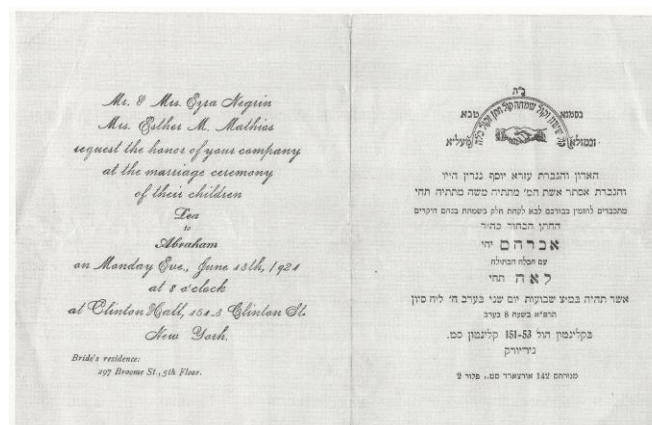 Mr. & Mrs. Ezra Negrin
Mrs. Esther M. Mathias
request the honor of your company
at the marriage ceremony
of their children
Lea
to
Abraham
on Monday Eve., June 13th, 1921
at 8 o'clock
at Clinton Hall, 151-3 Clinton St.
New York.
Bride's residence:
297 Broome St., 5th Floor.
ב״ה
בסמנא טבא
ובמזלא מעליא
קול ששון וקול שמחה קול חתן וקול כלה
האדון והגברת עזרא יוסף נגרין היו
והגברת אסתר אשת המ׳ מתתיה משה מתתיה תחי
מתכבדים להזמין כבודכם לבא לקחת חלק בשמחת בניהם היקרים
החתן הבחור כה״ר
אברהם יהי
עם הכלה הבתולה
לאה תחי
אשר תהיה במוצ שבועות יום שני בערב ח׳ לירח סיון
תרפ״א בשעה 8 בערב
בקלינטון הול 151-53 קלינטון סט.
ניו־יורק
מגורתם 142 אורצארד סט., פלור 2